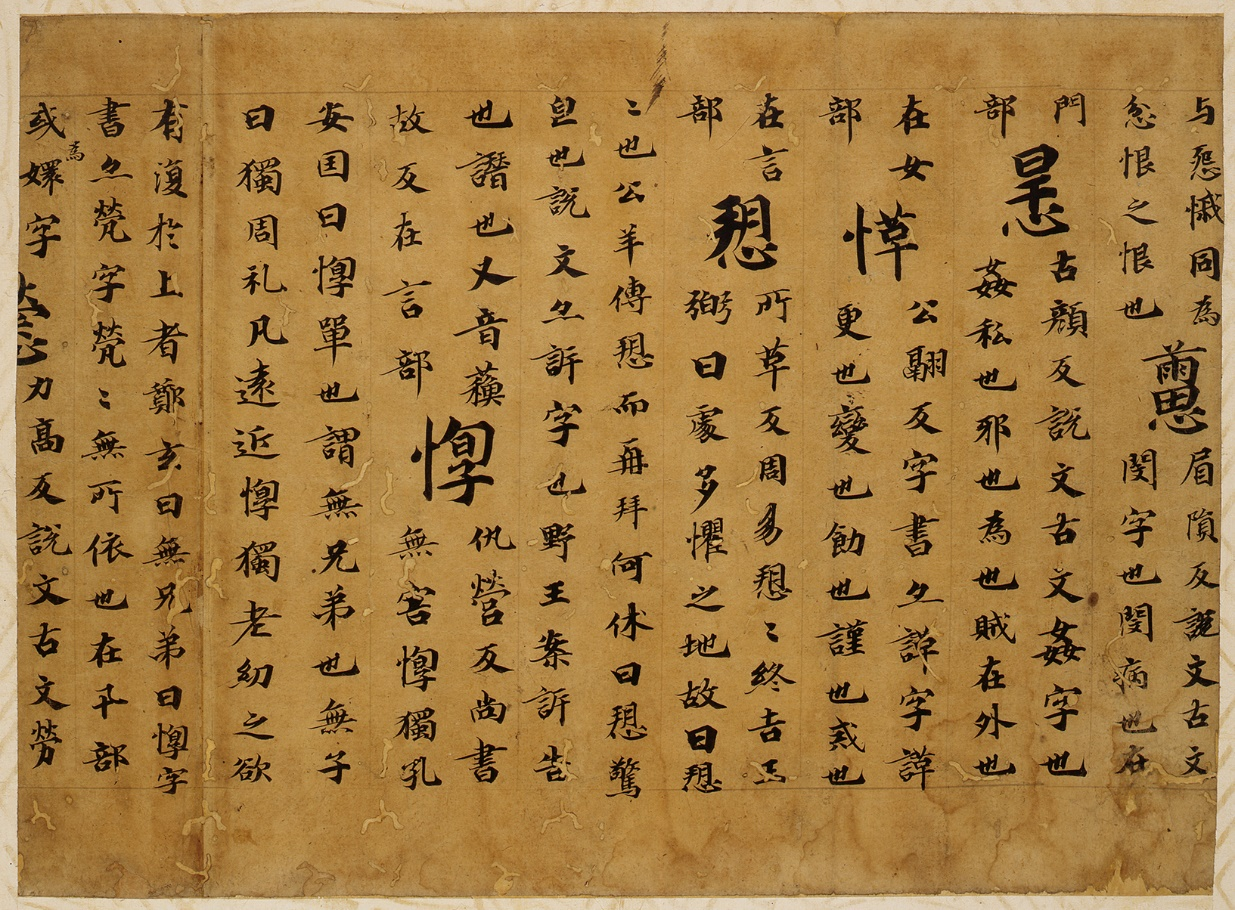 与慽同為
忩恨之恨也
眉隕反說文古文
閔字也閔病也在
門
部
古顏反說文古文姦字也
姦私也邪也為也賊在外也
在女
部
愅
公翮反字書亦諽字諽
更也變也飭也謹也戒也
在言
部
愬
所革反周易愬〻終吉王
弼曰處多懼之地故曰愬
〻也公羊傳愬而再拜何休曰愬驚
皇也說文亦訴字也野王案訴告
也譖也又音蘓
故反在言部
惸
仇營反尚書
無害惸獨孔
安国曰惸單也謂無兄弟也無子
曰獨周礼凡遠近惸獨老幼之欲
有復於上者鄭玄曰無兄弟曰惸字
書亦㷀字㷀〻無所依也在卂部
或為嬛字
力高反說文古文勞